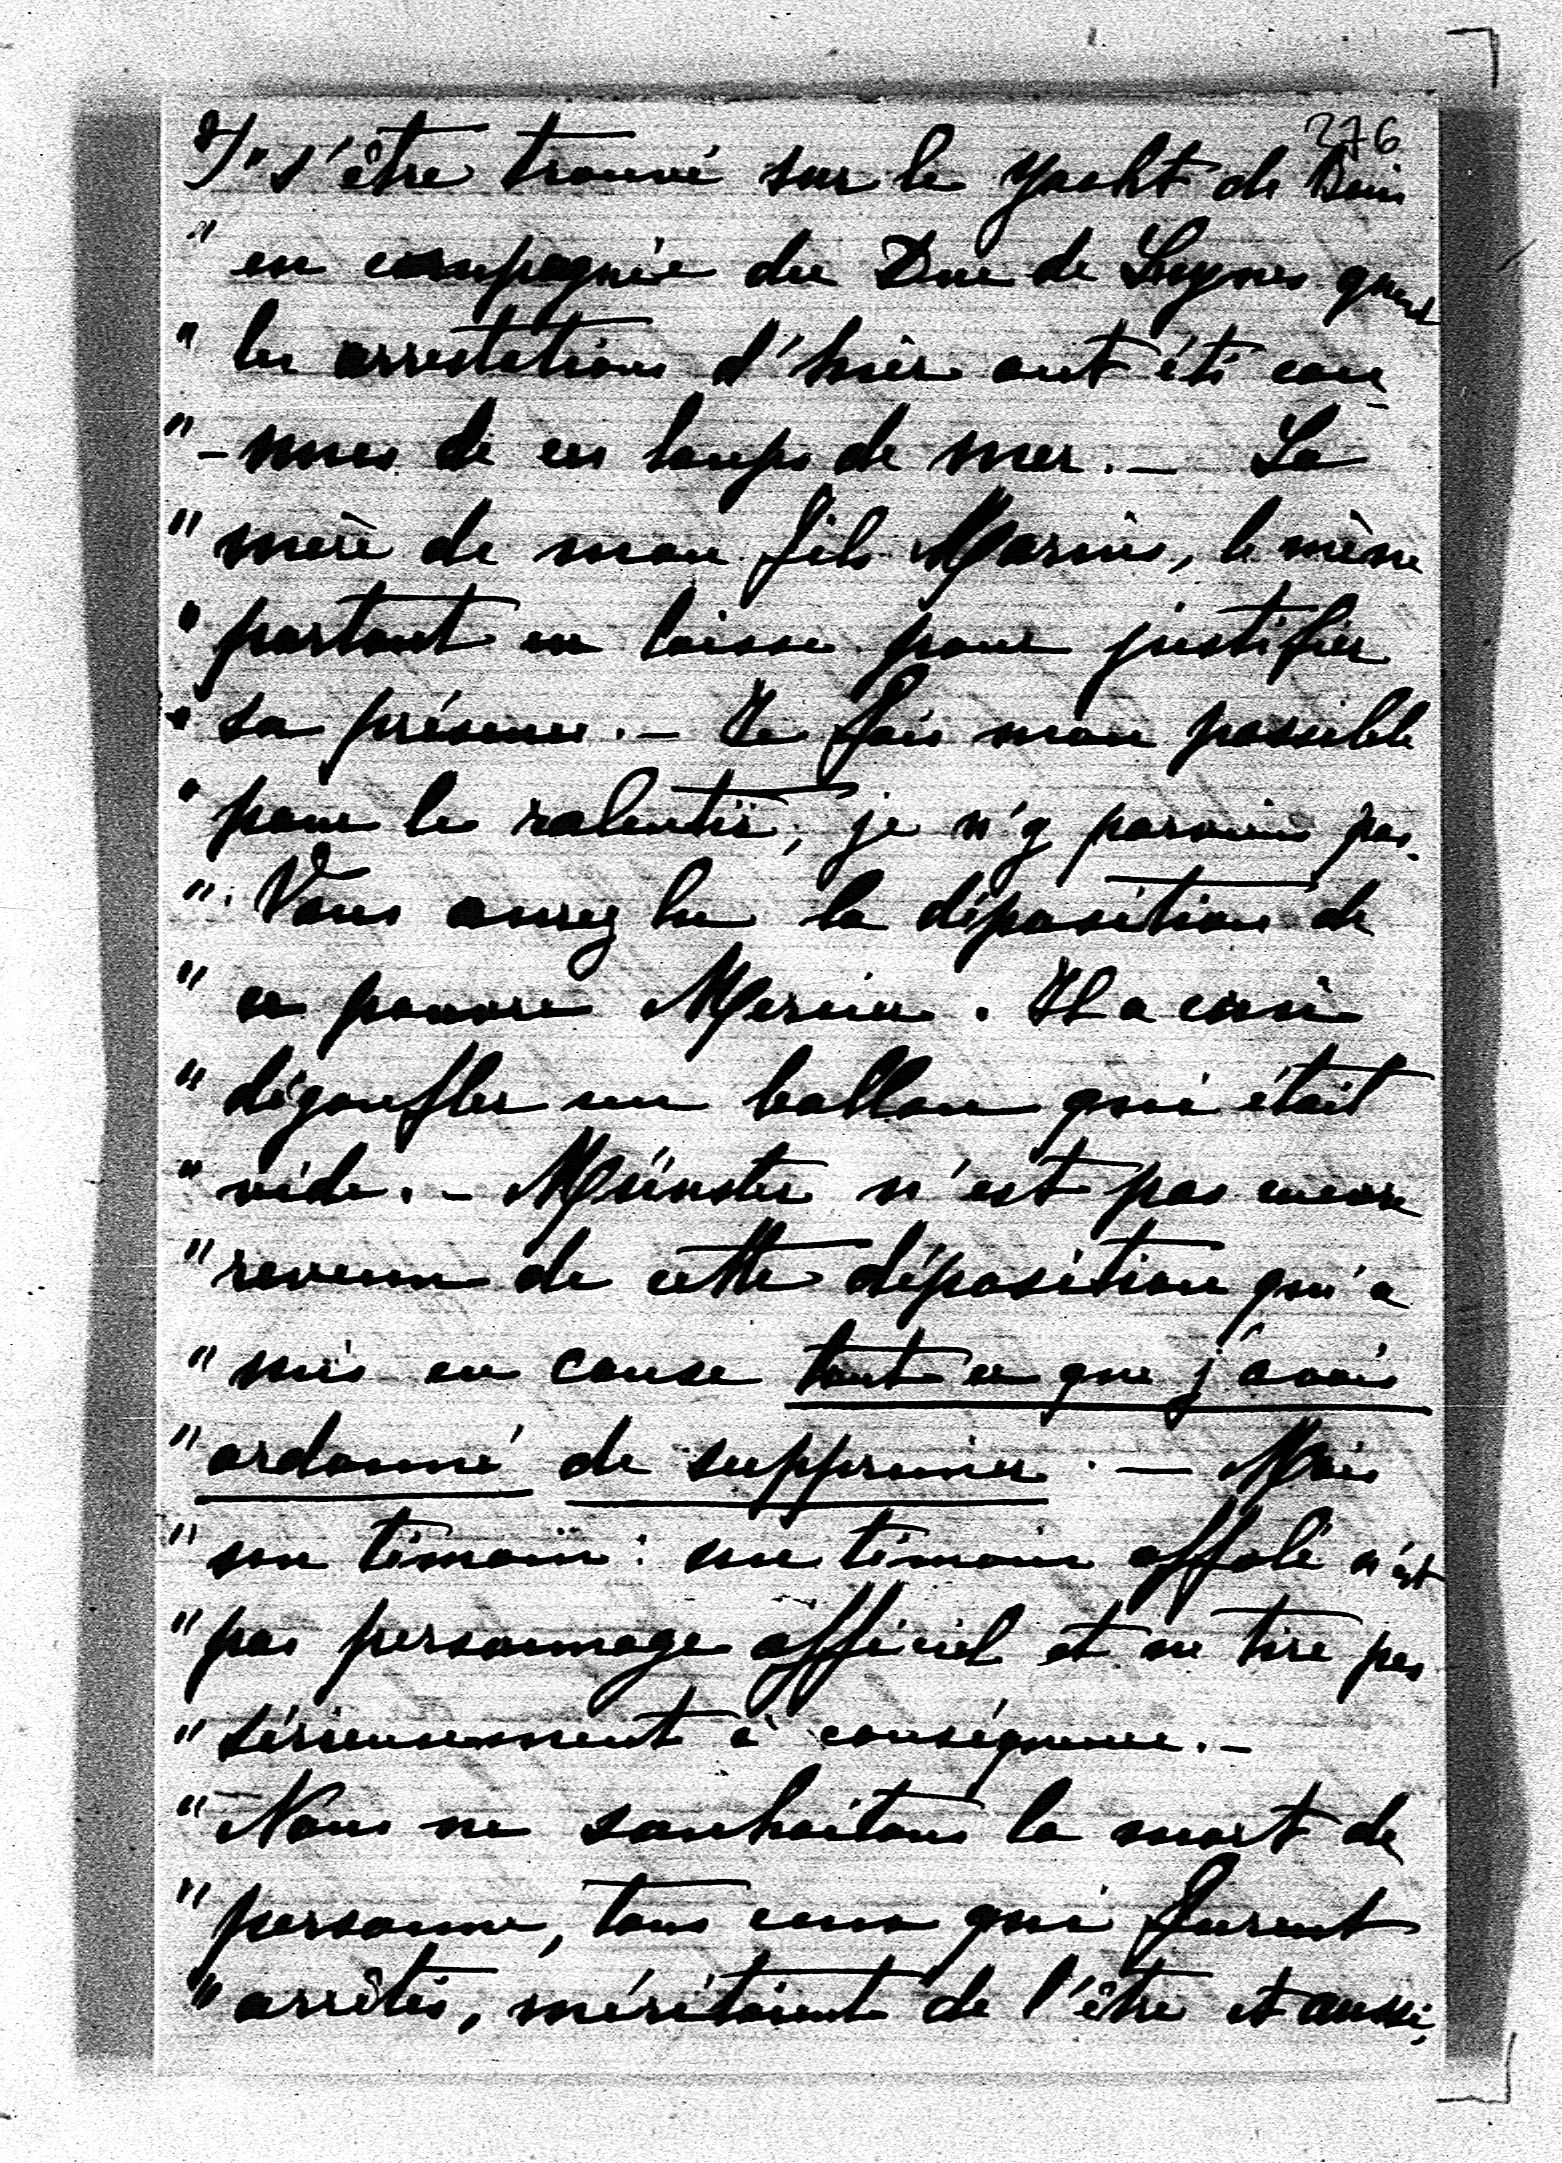 376
7" s'être trouvé sur le yacht de Boni
" en compagnie du Duc de Luynes quand
" les arrestations d'hier ont été con
" - nues de ces loups de mer. - La
" mère de mon fils Marius, le mène
" partout en laisse pour justifier
" sa présence. - Je fais mon possible
" pour le ralentir, je n'y parviens pas.
" Vous aurez lu la déposition de
" ce pauvre Mercier. Il a cru
" dégonfler un ballon qui était
" vide. - Münster n'est pas encore
" revenu de cette déposition qui a
" mis en cause tout ce que j'avais
" ordonné de supprimer. - Mais
" un témoin : un témoin affolé n'est
" pas personnage officiel et ne tire pas
" sérieusement à conséquence. -
" Nous ne souhaitons la mort de
" personne, tous ceux qui furent
" arrêtés, méritaient de l'être et aussi,